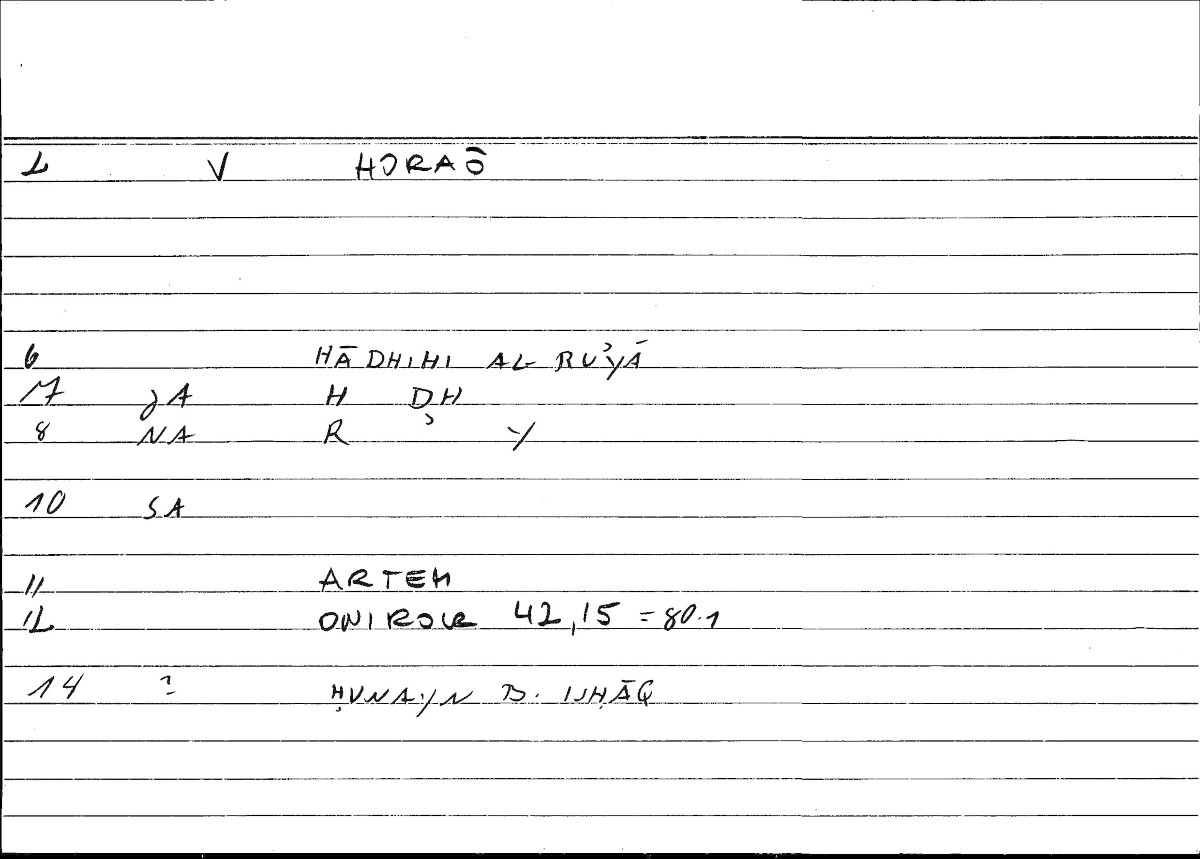 2 V HORAŌ
6 HĀDHIHI AL-RUʾYĀ
7 JA H DH
8 NA R ʾ Y
10 SA
11 ARTEM
12 ONIROCR 42,15 = 80.1
14 ? ḤUNAYN B. ISḤĀQ